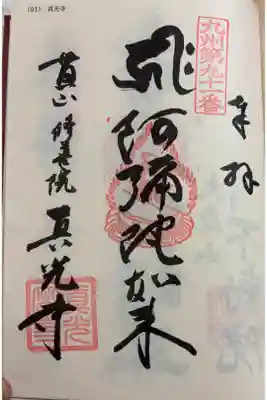 (91) 真光寺
九州第九十一番
奉拝
阿彌陀如来
修善院 真光寺